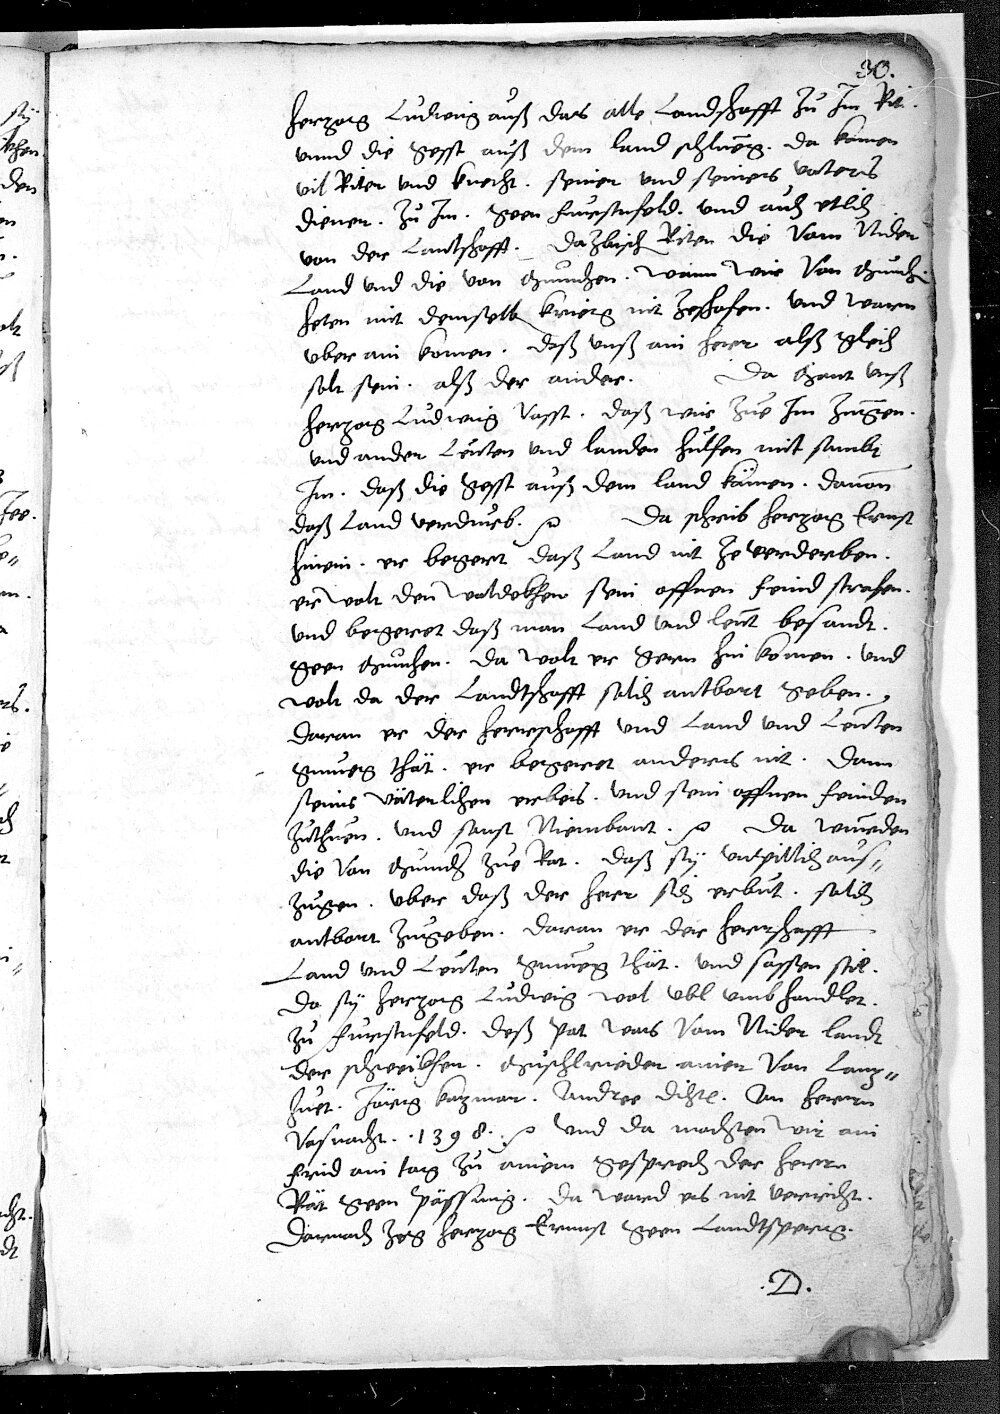 30.
herzog Ludwig auß das alle Landschafft zu Im Rit.
vnnd die gesst auß dem land schlueg. da komen
vil Riter vnd knecht. seiner vnd seiners vaters
diener. zu Im. geen furstnfeld. vnd auch etlich
von der Lantschafft. Dazbisch Riten die vom Nider
Land vnd die von Munchen. wann wir von Munch
heten mit demselb krieg nit ze schafen. vnd warn
vber ain komen. daß vnß ain herr alß gleich
solt sein. alß der ander. Da mant vnß
herzog Ludwig vasst. daß wir zue Im zugen.
vnd ander Leuten vnd landen hulfen mit sambt
Im. daß die gesst auß dem land kämen. dauon
daß Land verdurb. Da schrib herzog Ernst
hinein. er begert daß Land nit ze verderben.
er wolt den waldekher sein offnen feind strafen.
vnd begeret daß man Land vnd leut besandt.
geen Munchen. da wolt er gern hin komen. vnd
wolt da der Landtschafft solch antbort geben.
daran er der herrschafft vnd Land vnd Leuten
gnueg thät. er begeret anders nit. dann
seins väterlichen erbes. vnd sein offnen feinden
zuthuen. vnd sonst Niembant. Da wurden
die von Munch zue Rat. daß sy vnpillich aus„
zugen. vber daß der herr sich erbut. solch
antbort zugeben. daran er der herrschafft
Land vnd Leuten gnueg thät. vnd sassen stil.
Da sy herzog Ludwig wol vbl vmb handlet.
zu furstnfeld. deß pat was vom Nider landt
der schweikher. Muschlrieder ainer von Lanz„
huet. Jörg kazmar. Andree dichtl. An herrn
vasnacht. .1398. vnd da machten wir ain
frid ain tag zu ainem gesprech der herrn
Rät geen pässing. da ward es nit verricht.
Darnach zog herzog Ernst geen Landtsperg.
.D.